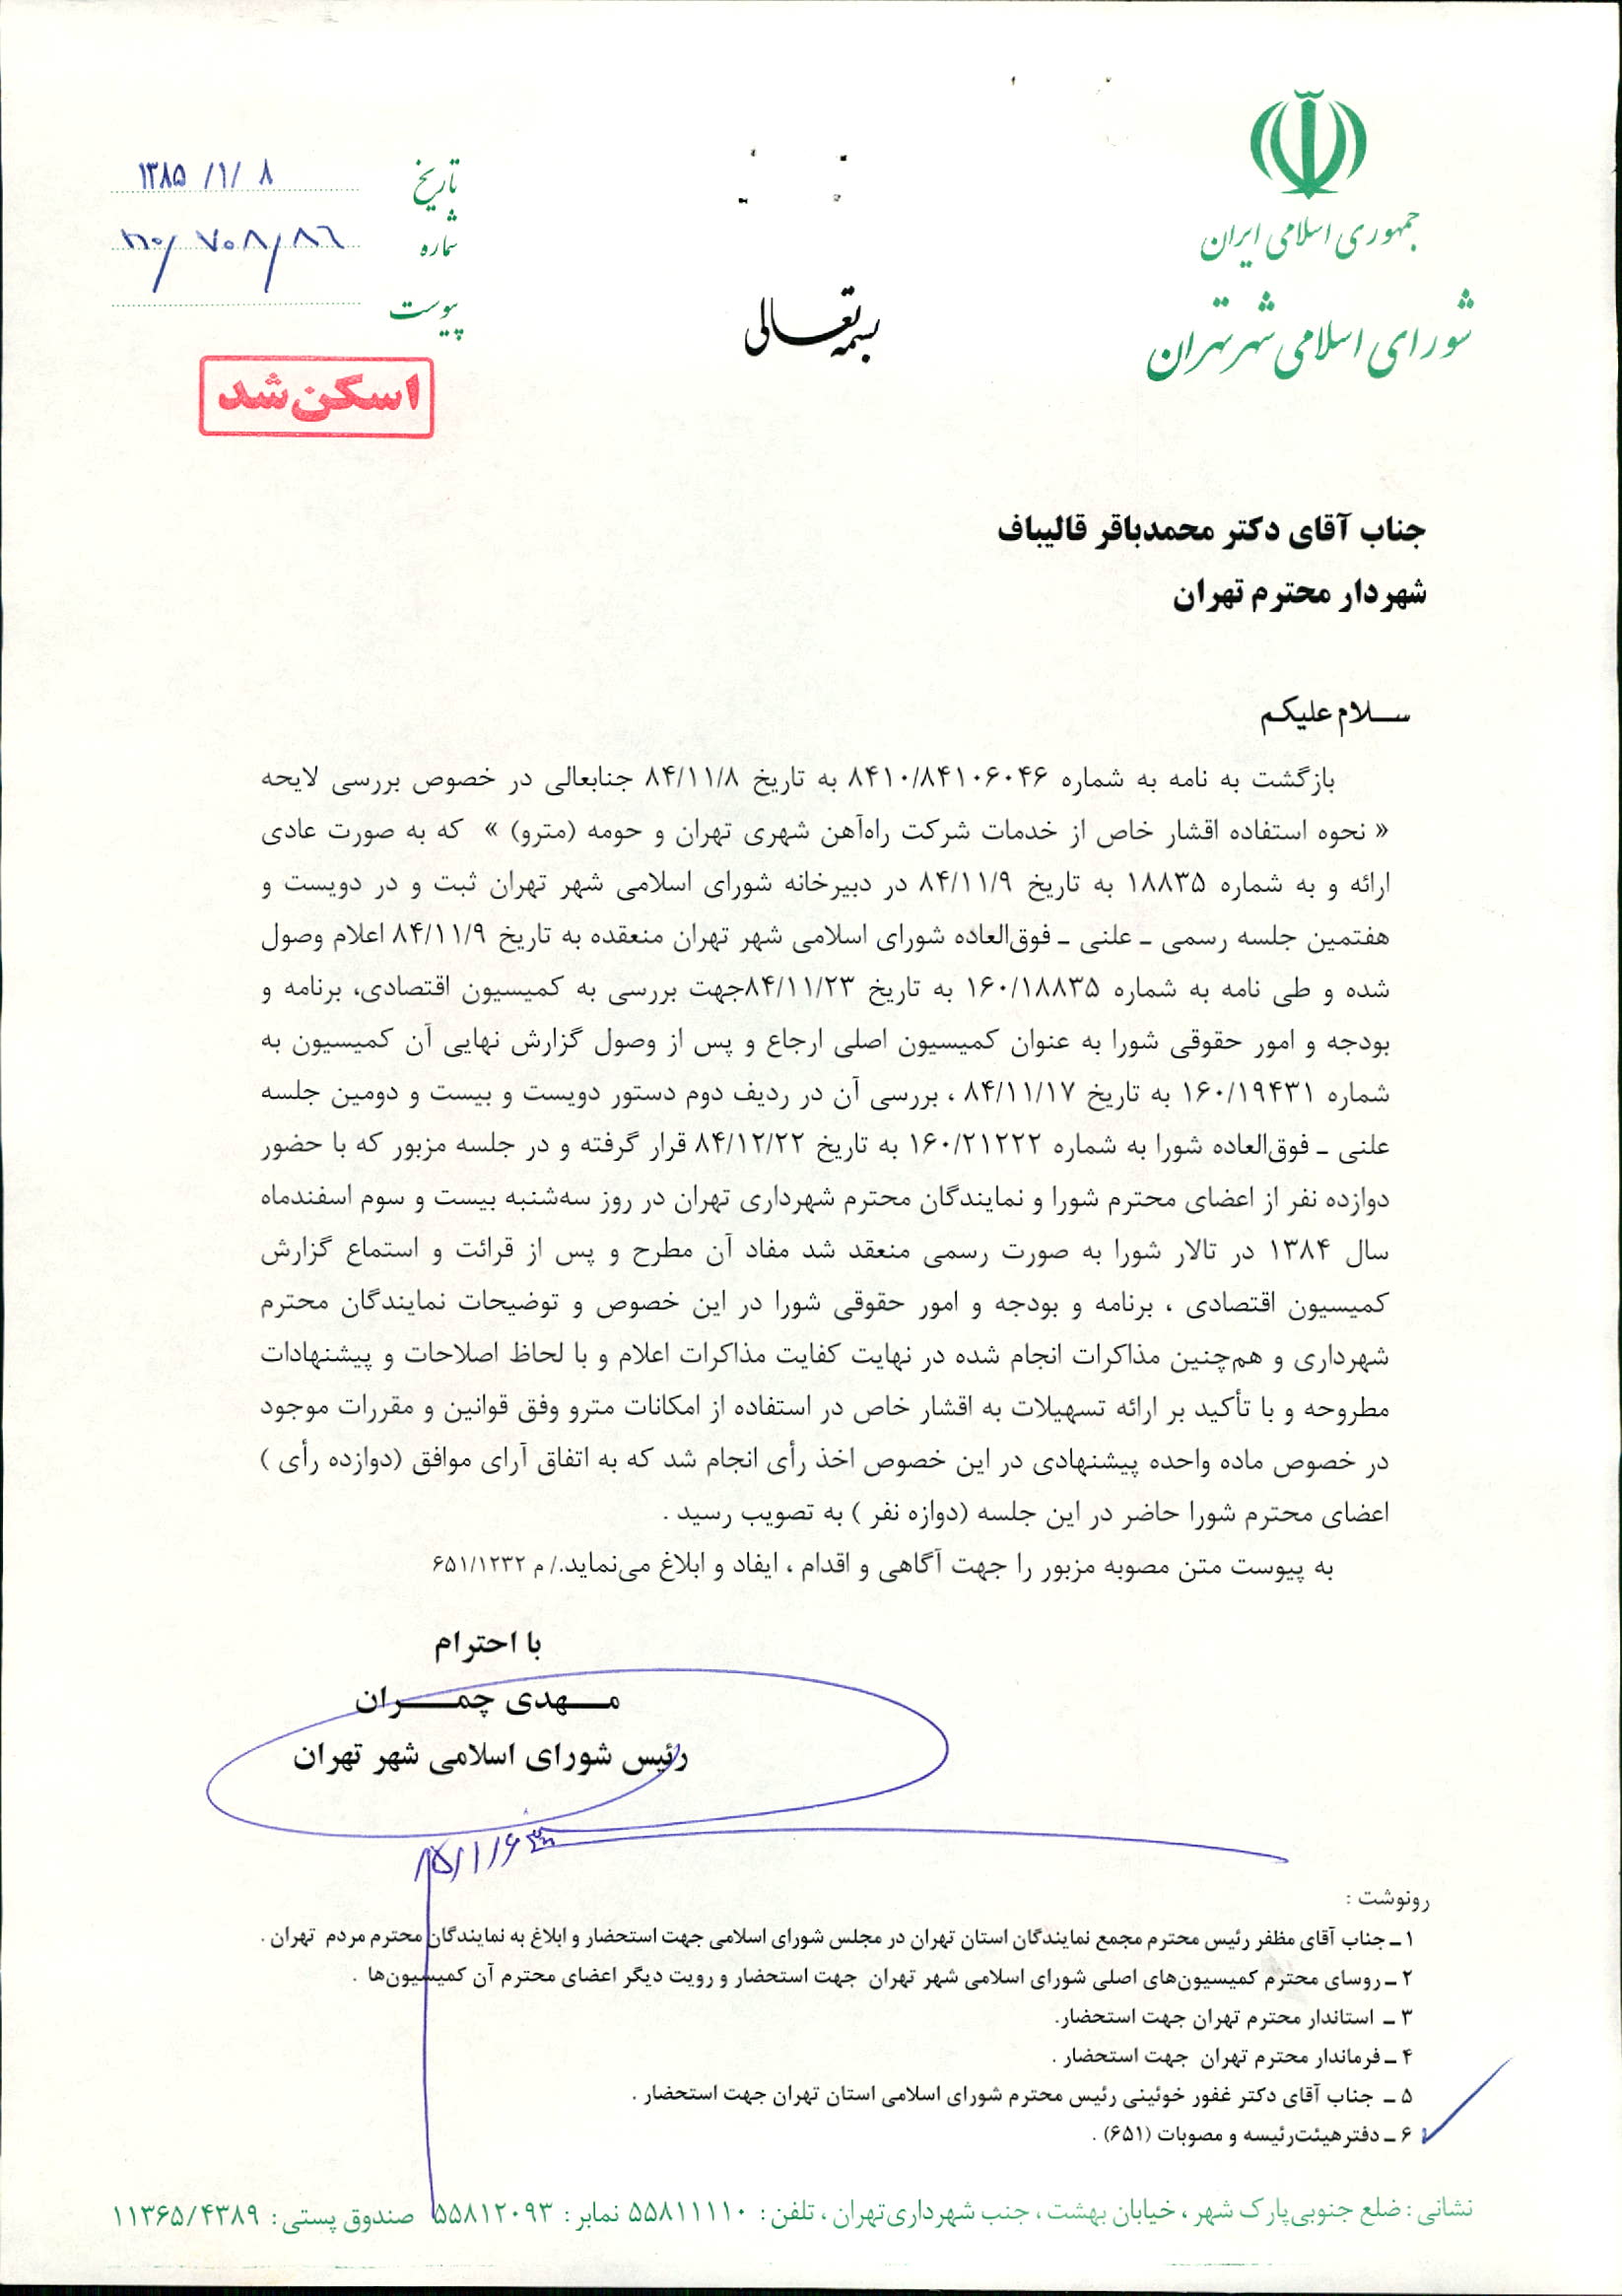 جمهوری اسلامی ایران
شورای اسلامی شهر تهران
بسمه تعالی
تاریخ ۱۳۸۵/۱/۸
شماره
پیوست
اسکن شد
جناب آقای دکتر محمدباقر قالیباف
شهردار محترم تهران
سلام علیکم
بازگشت به نامه به شماره ۸۴۱۰/۸۴۱۰۶۰۴۶ به تاریخ ۸۴/۱۱/۸ جنابعالی در خصوص بررسی لایحه
« نحوه استفاده اقشار خاص از خدمات شرکت راه‌آهن شهری تهران و حومه (مترو) » که به صورت عادی
ارائه و به شماره ۱۸۸۳۵ به تاریخ ۸۴/۱۱/۹ در دبیرخانه شورای اسلامی شهر تهران ثبت و در دویست و
هفتمین جلسه رسمی ـ علنی ـ فوق‌العاده شورای اسلامی شهر تهران منعقده به تاریخ ۸۴/۱۱/۹ اعلام وصول
شده و طی نامه به شماره ۱۶۰/۱۸۸۳۵ به تاریخ ۸۴/۱۱/۲۳جهت بررسی به کمیسیون اقتصادی، برنامه و
بودجه و امور حقوقی شورا به عنوان کمیسیون اصلی ارجاع و پس از وصول گزارش نهایی آن کمیسیون به
شماره ۱۶۰/۱۹۴۳۱ به تاریخ ۸۴/۱۱/۱۷ ، بررسی آن در ردیف دوم دستور دویست و بیست و دومین جلسه
علنی ـ فوق‌العاده شورا به شماره ۱۶۰/۲۱۲۲۲ به تاریخ ۸۴/۱۲/۲۲ قرار گرفته و در جلسه مزبور که با حضور
دوازده نفر از اعضای محترم شورا و نمایندگان محترم شهرداری تهران در روز سه‌شنبه بیست و سوم اسفندماه
سال ۱۳۸۴ در تالار شورا به صورت رسمی منعقد شد مفاد آن مطرح و پس از قرائت و استماع گزارش
کمیسیون اقتصادی ، برنامه و بودجه و امور حقوقی شورا در این خصوص و توضیحات نمایندگان محترم
شهرداری و هم‌چنین مذاکرات انجام شده در نهایت کفایت مذاکرات اعلام و با لحاظ اصلاحات و پیشنهادات
مطروحه و با تأکید بر ارائه تسهیلات به اقشار خاص در استفاده از امکانات مترو وفق قوانین و مقررات موجود
در خصوص ماده واحده پیشنهادی در این خصوص اخذ رأی انجام شد که به اتفاق آرای موافق (دوازده رأی )
اعضای محترم شورا حاضر در این جلسه (دوازه نفر ) به تصویب رسید .
به پیوست متن مصوبه مزبور را جهت آگاهی و اقدام ، ایفاد و ابلاغ می‌نماید./ م ۶۵۱/۱۲۳۲
با احترام
مهدی چمران
رئیس شورای اسلامی شهر تهران
۸۵/۱/۶
رونوشت :
۱ ـ جناب آقای مظفر رئیس محترم مجمع نمایندگان استان تهران در مجلس شورای اسلامی جهت استحضار و ابلاغ به نمایندگان محترم مردم تهران .
۲ ـ روسای محترم کمیسیون‌های اصلی شورای اسلامی شهر تهران جهت استحضار و رویت دیگر اعضای محترم آن کمیسیون‌ها .
۳ ـ استاندار محترم تهران جهت استحضار.
۴ ـ فرماندار محترم تهران جهت استحضار .
۵ ـ جناب آقای دکتر غفور خوئینی رئیس محترم شورای اسلامی استان تهران جهت استحضار .
۶ ـ دفتر هیئت‌رئیسه و مصوبات (۶۵۱) .
نشانی : ضلع جنوبی پارک شهر ، خیابان بهشت ، جنب شهرداری تهران ، تلفن : ۵۵۸۱۱۱۱۰ نمابر : ۵۵۸۱۲۰۹۳ صندوق پستی : ۱۱۳۶۵/۴۳۸۹